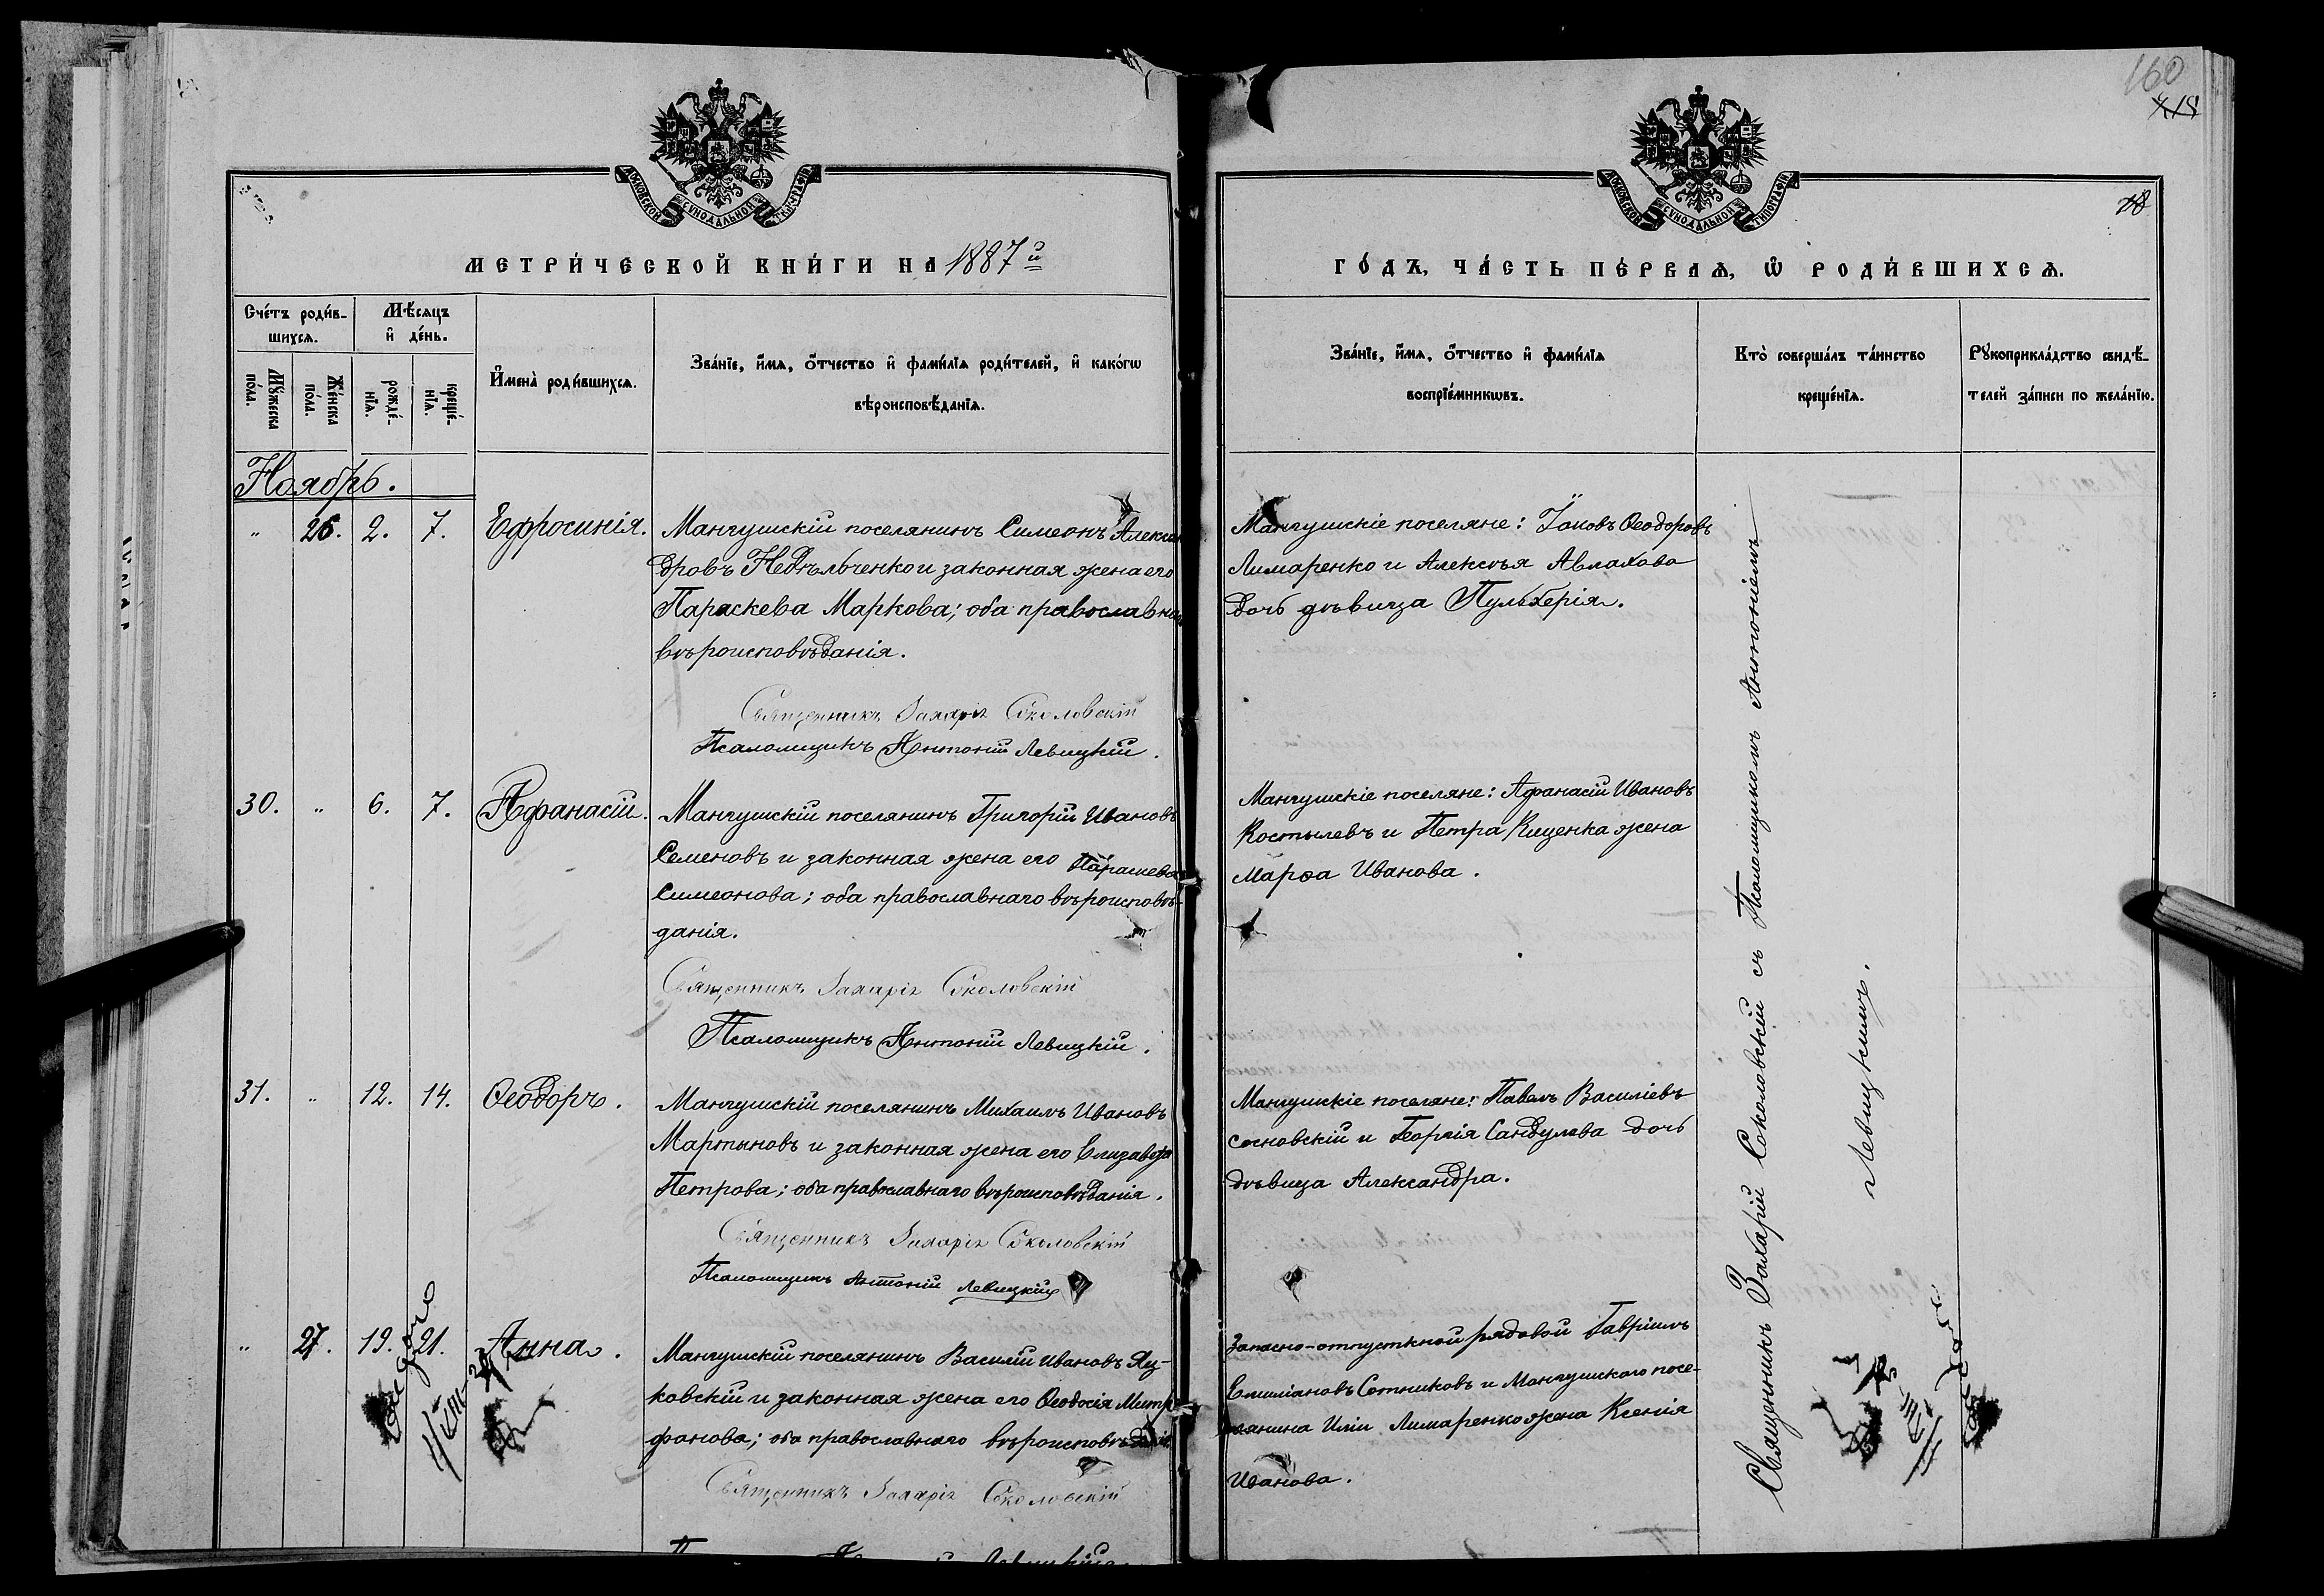 160
418
18
МОСКОВСКОЙ СУНОДАЛЬНОЙ ТИПОГРАФІИ
МОСКОВСКОЙ СУНОДАЛЬНОЙ ТИПОГРАФІИ
МЕТРИ́ЧЕСКОЙ КНИ́ГИ НА 1887й
ГО́ДЪ, ЧА́СТЬ ПЕ́РВАѦ, Ѡ РОДИ́ВШИХСѦ.
Сче́тъ роди́в-
шихсѧ.
Мѣ́сѧцъ
и де́нь.
Мꙋ́жеска
по́ла.
Же́нска
по́ла.
рожде́-
нїѧ.
креще́-
нїѧ.
И҆мена̀ роди́вшихсѧ.
Зва́нїе, и҆́мѧ, о҆́тчество и҆ фами́лїѧ роди́телей, и҆ како́гѡ
вѣроисповѣ́данїѧ.
Зва́нїе, и҆́мѧ, о҆́тчество и҆ фами́лїѧ
воспрїе́мникѡвъ.
Кто̀ соверша́лъ та́инство
креще́нїѧ.
Рꙋкоприкла́дство свидѣ́-
телей за́писи по жела́нїю.
Ноябрь.
" 26. 2. 7. Ефросинія.
Мангушскій поселянинъ Симеонъ Алексан
дровъ Недѣльченко и законная жена его
Параскева Маркова; оба православна
вѣроисповѣданія.
Священникъ Захарія Соколовскій
Псаломщикъ Антоній Левицкій.
Мангушскіе поселяне: Іаковъ Ѳеодоровъ
Лимаренко и Алексѣя Авлахова
дочь дѣвица Пульхерія.
30. " 6. 7. Аѳанасій.
Мангушскій поселянинъ Григорій Ивановъ
Семеновъ и законная жена его Параскева
Симеонова; оба православнаго вѣроисповѣ-
данія.
Священникъ Захарія Соколовскій
Псаломщикъ Антоній Левицкій.
Мангушскіе поселяне: Афанасій Ивановъ
Костылевъ и Петра Кищенка жена
Марѳа Иванова.
31. " 12. 14. Ѳеодоръ.
Мангушскій поселянинъ Михаилъ Ивановъ
Мартыновъ и законная жена его Елизавета
Петрова; оба православнаго вѣроисповѣданія.
Священникъ Захарія Соколовскій
Псаломщикъ Антоній Левицкій
Мангушскіе поселяне: Павелъ Василіевъ
Сосновскій и Георгія Сандулова дочь
дѣвица Александра.
" 27. 19. 21. Анна.
Мангушскій поселянинъ Василій Ивановъ Яц-
ковскій и законная жена его Ѳеодосія Митр
фанова; оба православнаго вѣроисповѣданія
Священникъ Захарія Соколовскій
Левицкій.
Запасно-отпускной рядовой Гавріилъ
Емиліановъ Сотниковъ и Мангушскаго посе-
лянина Иліи Лимаренко жена Ксенія
Иванова.
Священникъ Захарій Соколовскій съ Псаломщикомъ Антоніемъ
Левицкимъ.